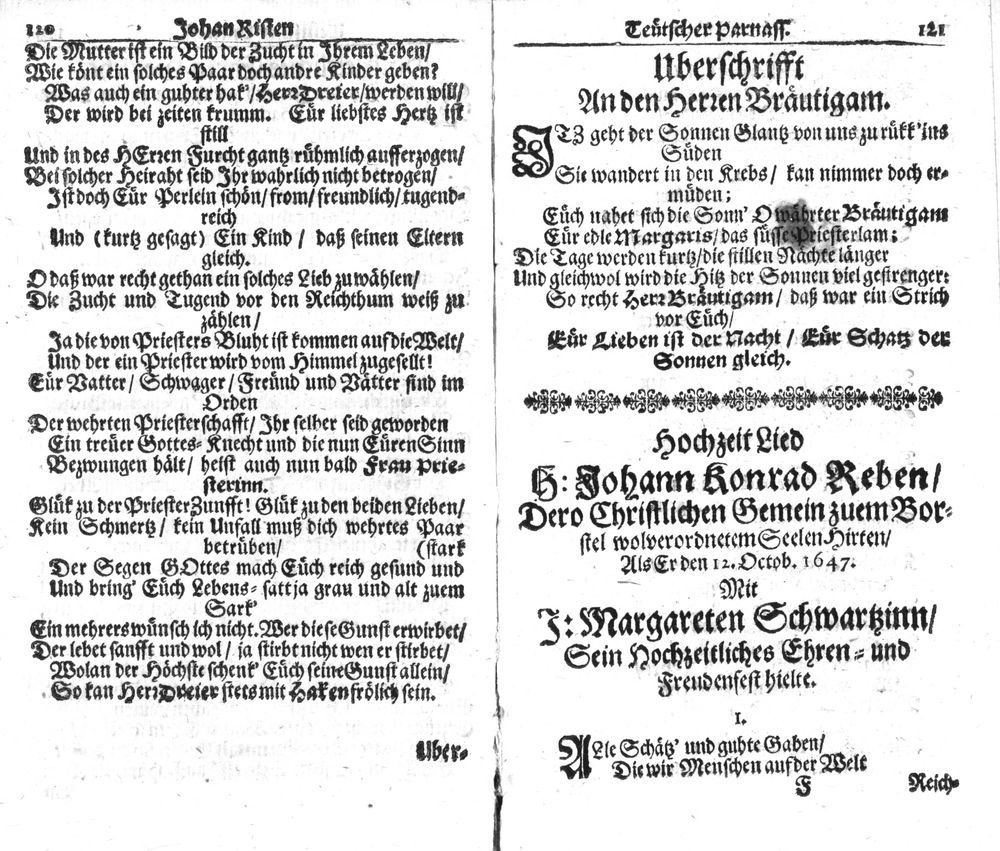 120 Johan Risten
Die Mutter ist ein Bild der Zucht in Ihrem Leben/
Wie könt ein solches Paar doch andre Kinder geben?
Was auch ein guhter hak'/Herr Dreier/werden will/
Der wird bei zeiten krumm. Eür liebstes Hertz ist
still
Und in des HErren Furcht gantz rühmlich aufferzogen/
Bei solcher Heiraht seid Ihr wahrlich nicht betrogen/
Ist doch Eür Perlein schön/from/freundlich/tugend-
reich
Und (kurtz gesagt) Ein Kind/ daß seinen Eltern
gleich.
O daß war recht gethan ein solches Lieb zu wählen/
Die Zucht und Tugend vor den Reichthum weiß zu
zählen/
Ja die von Priesters Bluht ist kommen auf die Welt/
Und der ein Priester wird vom Himmel zugesellt!
Eür Vatter/ Schwager/ Freünd und Vätter sind im
Orden
Der wehrten Priesterschafft/ Ihr selber seid geworden
Ein treüer Gottes-Knecht und die nun Eüren Sinn
Bezwungen hält/ heist auch nun bald Frau Prie-
sterinn.
Glük zu der Priester Zunfft! Glük zu den beiden Lieben/
Kein Schmertz/ kein Unfall muß dich wehrtes Paar
betrüben/ (stark
Der Segen GOttes mach Eüch reich gesund und
Und bring' Eüch Lebens-satt ja grau und alt zuem
Sark'
Ein mehrers wünsch ich nicht. Wer diese Gunst erwirbet/
Der lebet sanfft und wol/ ja stirbt nicht wen er stirbet/
Wolan der Höchste schenk' Eüch seine Gunst allein/
So kan Herr Dreier stets mit Haken frölich sein.
Uber-
Teütscher Parnass. 121
Uberschrifft
An den Herren Bräutigam.
ITZ geht der Sonnen Glantz von uns zu rükk' ins
Süden
Sie wandert in den Krebs/ kan nimmer doch er-
müden;
Eüch nahet sich die Sonn' O währter Bräutigam
Eür edle Margaris/ das süsse Priesterlam;
Die Tage werden kurtz/die stillen Nächte länger
Und gleichwol wird die Hitz der Sonnen viel gestrenger:
So recht Herr Bräutigam/ daß war ein Strich
vor Eüch/
Eür Lieben ist der Nacht/ Eür Schatz der
Sonnen gleich.
Hochzeit Lied
H: Johann Konrad Reben/
Dero Christlichen Gemein zuem Bor-
stel wolverordnetem Seelen Hirten/
Als Er den 12. Octob. 1647.
Mit
J: Margareten Schwartzinn/
Sein Hochzeitliches Ehren- und
Freudenfest hielte.
1.
ALle Schätz' und guhte Gaben/
Die wir Menschen auf der Welt
F Reich-